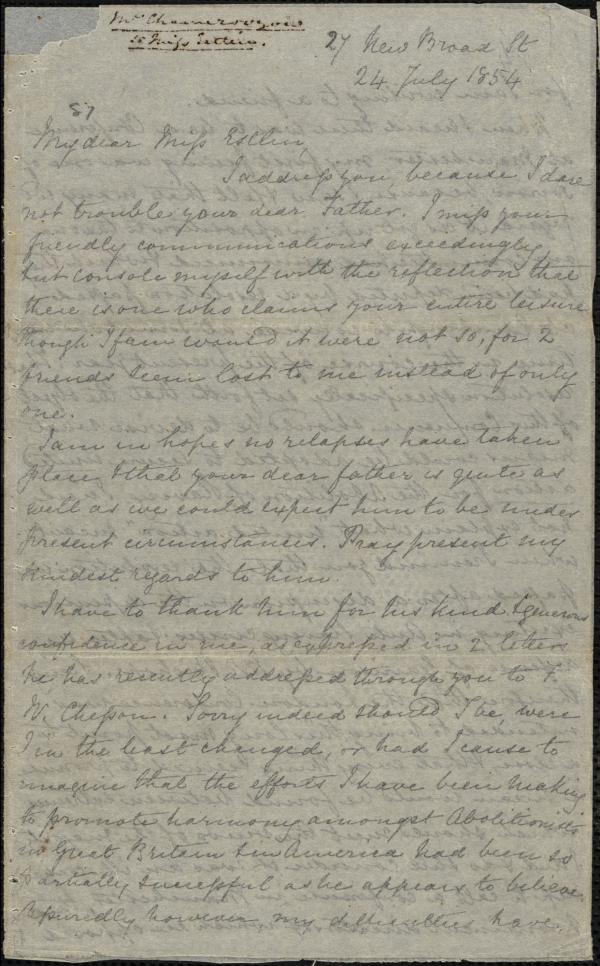 Mr Chamerovzow
to Miss Estlin.
27 New Broad St
24 July 1854
87
My dear Miss Estlin,
I address you, because I dare
not trouble your dear Father. I miss your
friendly communications exceedingly,
but console myself with the reflection that
there is one who claims your entire leisure
though I fain would it were not so, for 2
friends seem lost to me instead of only
one.
I am in hopes no relapses have taken
place & that your dear father is quite as
well as we could expect him to be under
present circumstances. Pray present my
kindest regards to him.
I have to thank him for his kind & generous
confidence in me, as expressed in 2 letters
he has recently addressed through you to F.
W. Chesson. Sorry indeed should I be, were
I in the least changed, or had I cause to
imagine that the efforts I have been making
to promote harmony amongst Abolitionists
in Great Britain & in America had been so
partially successful as he appears to believe.
Assuredly however my difficulties have